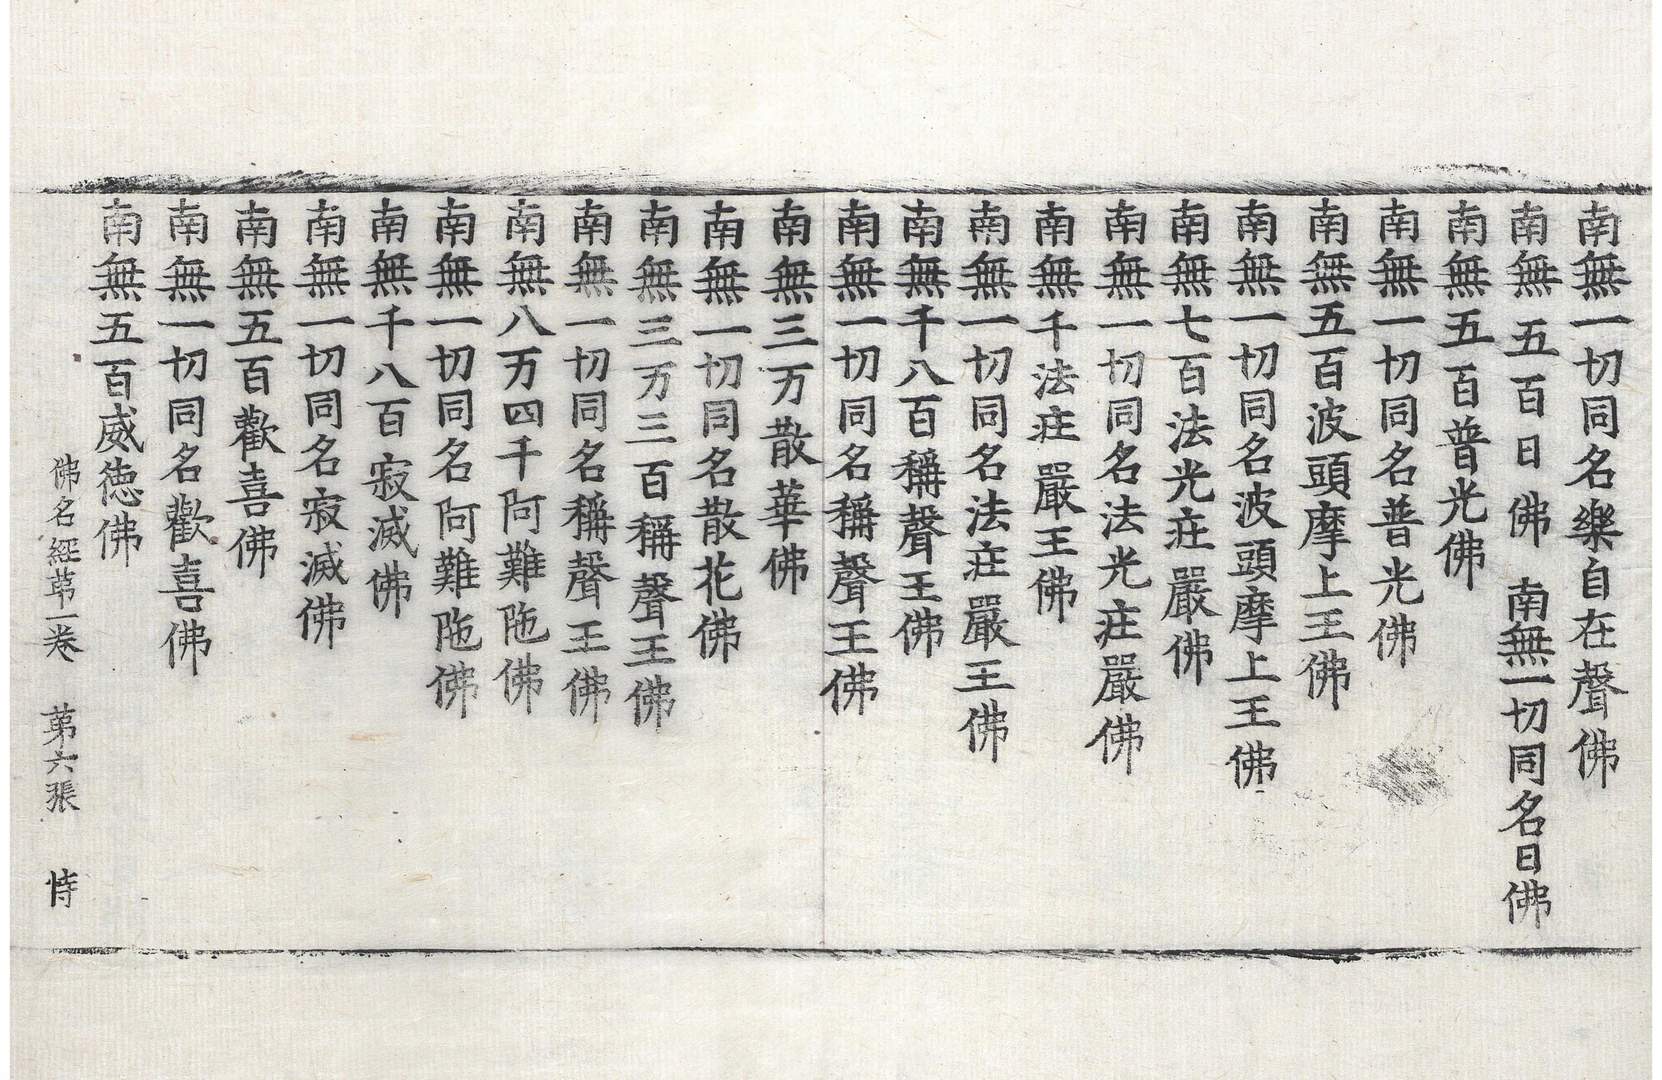 南無一切同名樂自在聲佛
南無五百日佛 南無一切同名日佛
南無五百普光佛
南無一切同名普光佛
南無五百波頭摩上王佛
南無一切同名波頭摩上王佛
南無七百法光莊嚴佛
南無一切同名法光莊嚴佛
南無千法莊嚴王佛
南無一切同名法莊嚴王佛
南無千八百稱聲王佛
南無一切同名稱聲王佛
南無三万散華佛
南無一切同名散花佛
南無三万三百稱聲王佛
南無一切同名稱聲王佛
南無八万四千阿難陁佛
南無一切同名阿難陁佛
南無千八百寂滅佛
南無一切同名寂滅佛
南無五百歡喜佛
南無一切同名歡喜佛
南無五百威德佛
佛名經第一卷 第六張 恃